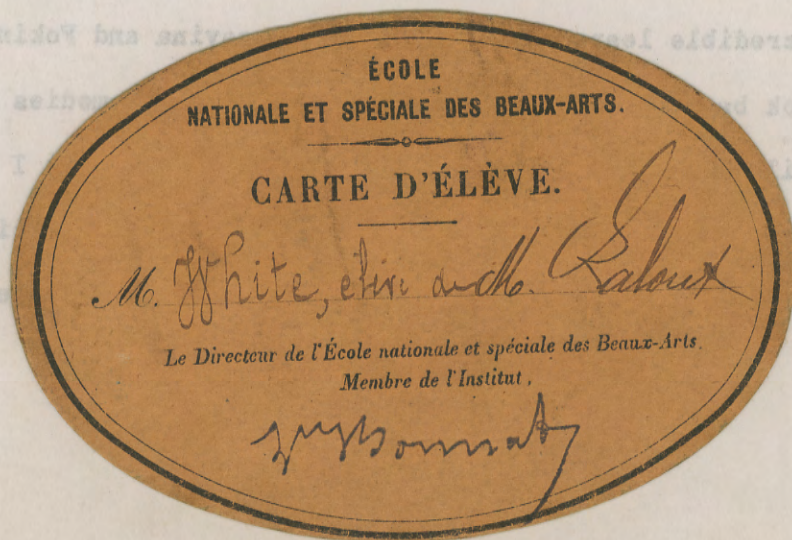 ÉCOLE
NATIONALE ET SPÉCIALE DES BEAUX-ARTS.
CARTE D'ÉLÈVE.
M. White, élève de M. Laloux
Le Directeur de l'École nationale et spéciale des Beaux-Arts.
Membre de l'Institut,
Bonnat